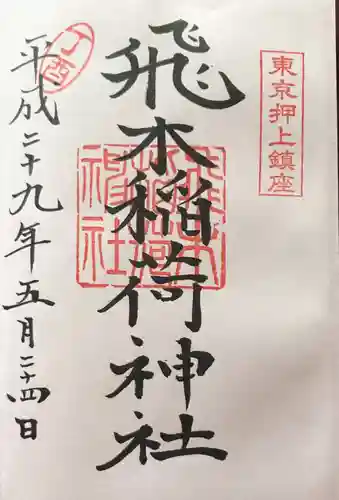 東京押上鎮座
飛木稲荷神社
丁酉
平成二十九年五月二十四日